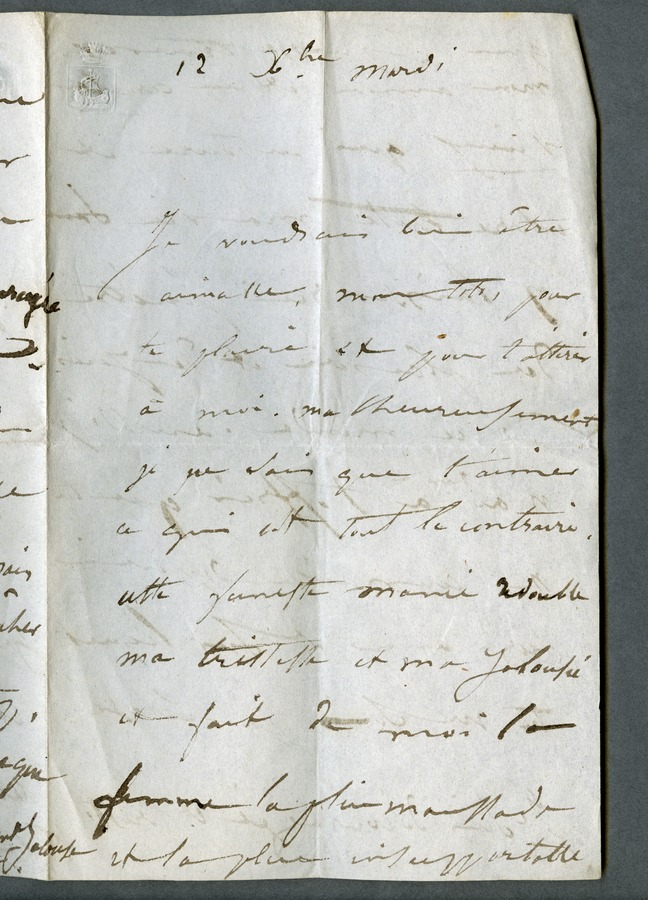 12 Xbre mardi
Je voudrais bien être
aimable, mon toto, pour
te plaire et pour t'attirer
à moi. malheureusement
je ne sais que t'aimer
ce qui est tout le contraire.
cette funeste manie redouble
ma tristesse et ma jalousie
et fait de moi la
femme la plus maussade
et la plus insupportable